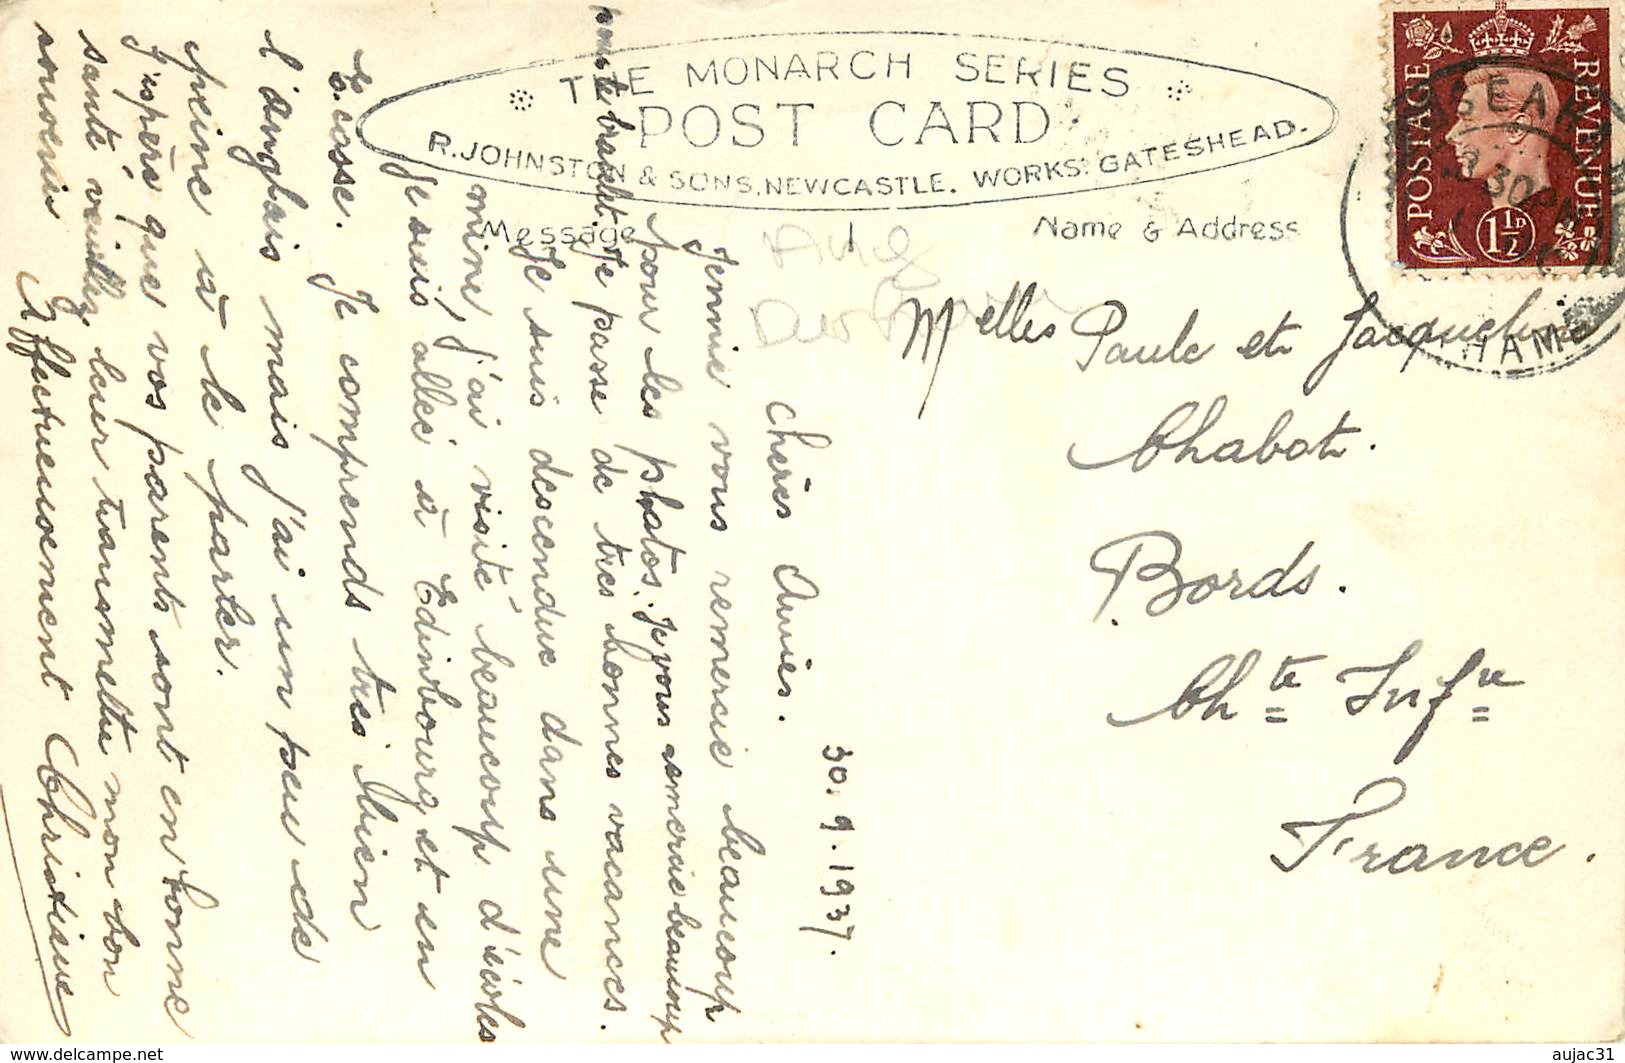 THE MONARCH SERIES
POST CARD
R. JOHNSTON & SONS, NEWCASTLE. WORKS: GATESHEAD.
Message
Name & Address
POSTAGE
REVENUE
1½D
SEAHA
30 PM
HAM
30.9.1937.
Chères Amies.
Jennie vous remercie beaucoup
pour les photos. Je vous remercie beaucoup
pour le bracelet. Je passe de très bonnes vacances.
Je suis descendue dans une
mine, j'ai visité beaucoup d'écoles
Je suis allée à Edinbourg et en
Ecosse. Je comprends très bien
l'anglais mais j'ai un peu de
peine à le parler.
J'espère que vos parents sont en bonne
santé, veuillez leur transmettre mon bon
souvenir Affectueusement Christiane
Melles Paule et Jacqueline
Chabot.
Bords.
Chte Infre
France.
www.delcampe.net
aujac31